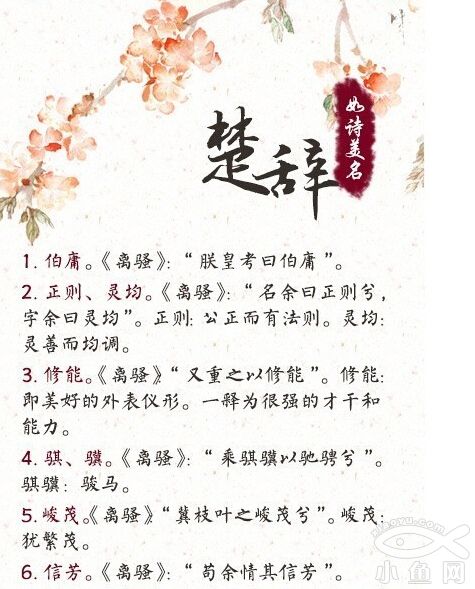 楚辞
如诗美名
1. 伯庸。《离骚》：“朕皇考曰伯庸”。
2. 正则、灵均。《离骚》：“名余曰正则兮，
字余曰灵均”。正则：公正而有法则。灵均：
灵善而均调。
3. 修能。《离骚》“又重之以修能”。修能：
即美好的外表仪形。一释为很强的才干和
能力。
4. 骐、骥。《离骚》：“乘骐骥以驰骋兮”。
骐骥：骏马。
5. 峻茂。《离骚》“冀枝叶之峻茂兮”。峻茂：
犹繁茂。
6. 信芳。《离骚》：“苟余情其信芳”。
xiaoyu.com
小鱼网